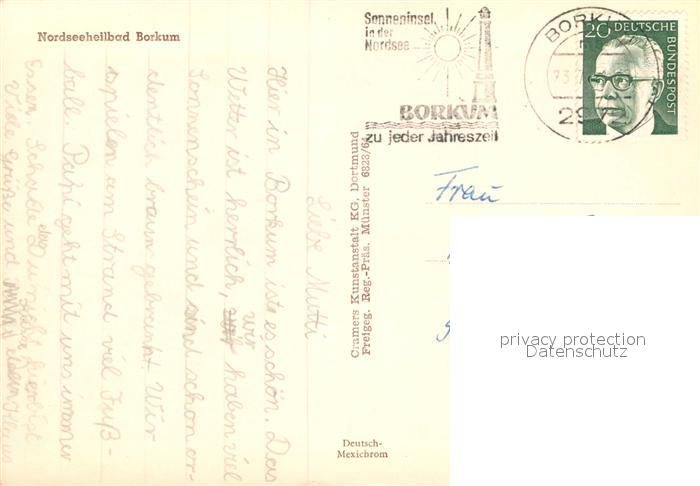 Nordseeheilbad Borkum
Sonneninsel
in der
Nordsee
BORKUM
zu jeder Jahreszeit
BORKUM
2972
20 DEUTSCHE
BUNDESPOST
Liebe Mutti
Hier in Borkum ist es schön. Das
Wetter ist herrlich, wir haben viel
Sonnenschein und sind schon or-
dentlich braun gebrannt. Wir
spielen am Strand viel Fuß-
ball. Papi geht mit uns immer
Essen. Schade aber Du nicht hier bist
Viele Grüße und
Cramers Kunstanstalt KG, Dortmund
Freigeg. Reg.-Präs. Münster 6823/64
Frau
Deutsch-
Mexichrom
privacy protection
Datenschutz